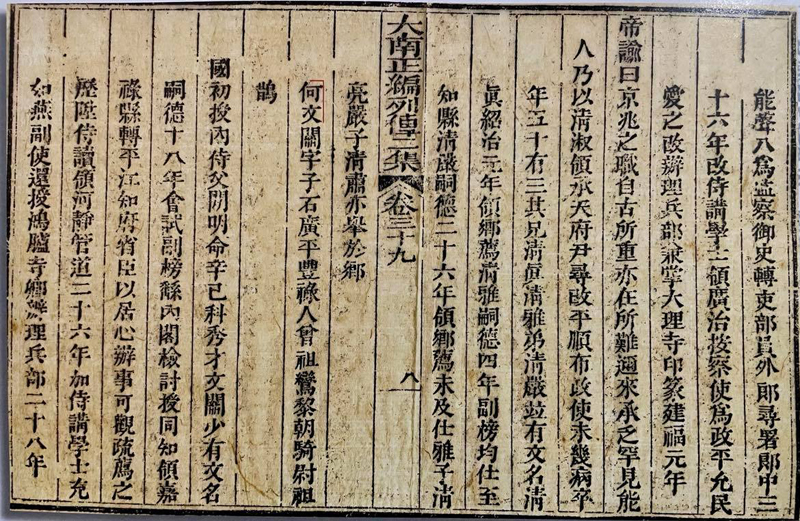 能聲入爲監察御史轉吏部員外郎尋署郎中三
十六年改侍講學士領廣治按察使爲政平允民
愛之改辦理兵部兼掌大理寺印篆建福元年
帝諭曰京兆之職自古所重亦在所難邇來承乏罕見能
人乃以清淑領承天府尹尋改平順布政使未幾病卒
年五十有三其兄清眞清雅弟清嚴竝有文名清
眞紹治元年領鄉薦清雅嗣德四年副榜均仕至
知縣清嚴嗣德二十六年領鄉薦未及仕雅子清
大南正編列傳二集 卷三十九 八
亮嚴子清肅亦舉於鄉
何文關字子石廣平豐祿人曾祖鸞黎朝騎尉祖
鵲
國初授內侍父閉明命辛巳科秀才文關少有文名
嗣德十八年會試副榜繇內閣檢討授同知領嘉
祿縣轉平江知府省臣以居心辦事可觀疏薦之
歷陞侍讀領河靜管道二十六年加侍講學士充
如燕副使還授鴻臚寺卿辦理兵部二十八年